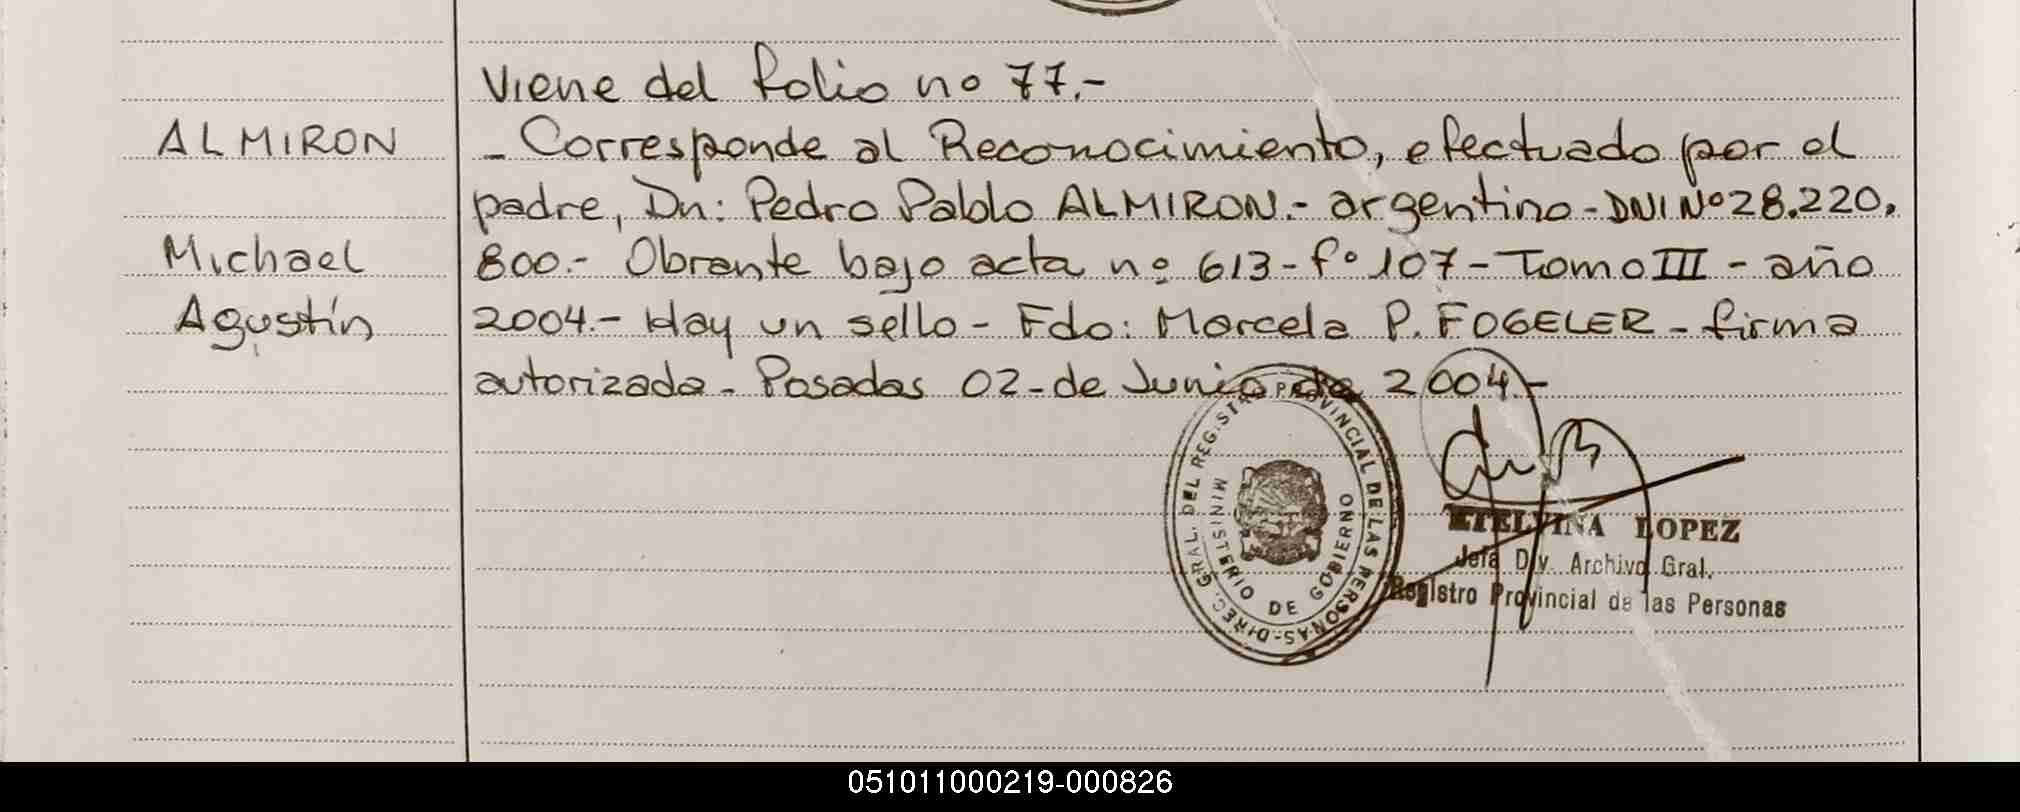 Viene del folio no 77.-
ALMIRON
- Corresponde al Reconocimiento, efectuado por el
padre, Dn: Pedro Pablo ALMIRON.- argentino - DNI Nº 28.220.
Michael
800.- Obrante bajo acta nº 613 - fº 107 - Tomo III - año
Agustín
2004.- Hay un sello - Fdo: Marcela P. FOGELER - firma
autorizada - Posadas 02 - de Junio de 2004.-
DIREC. GRAL. DEL REGIST. PROVINCIAL DE LAS PERSONAS -
MINISTERIO DE GOBIERNO
ETELVINA LOPEZ
Jefa Div. Archivo Gral.
Registro Provincial de las Personas
051011000219-000826